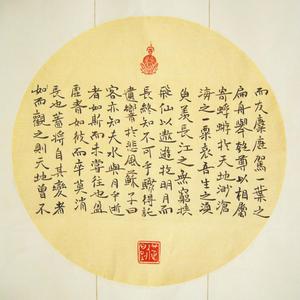 而友麋鹿駕一葉之
扁舟舉匏尊以相屬
寄蜉蝣於天地渺滄
海之一粟哀吾生之須
臾羨長江之無窮挾
飛仙以遨遊抱明月而
長終知不可乎驟得託
遺響於悲風蘇子曰
客亦知夫水與月乎逝
者如斯而未嘗往也盈
虛者如彼而卒莫消
長也蓋將自其變者
如而觀之則天地曾不